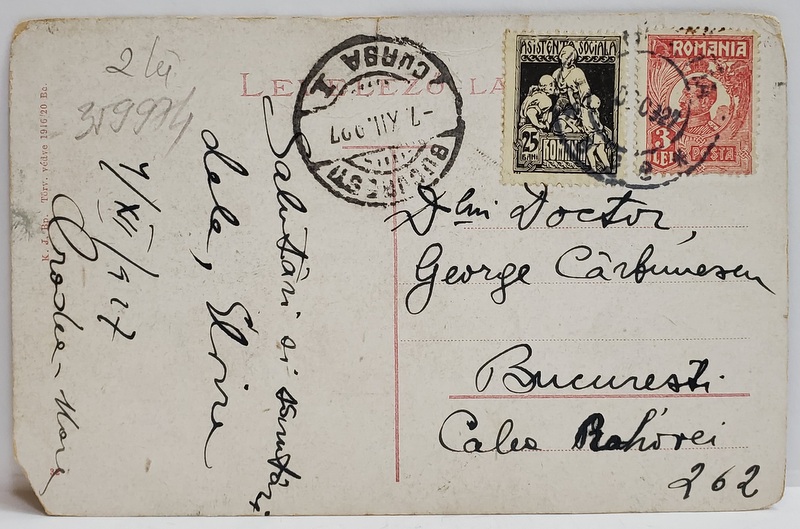 2 lei
359974
LEVELEZŐLAP
CURSA I
-7.XII.927
BUCUREȘTI
ASISTENȚA SOCIALA
25
BANI
ROMANIA
ROMANIA
3
LEI
POSTA
K. J. Bp. Törv. védve 1916/20 Bc.
Salutări si sărutări
dela, Elvira
7/XII/927
Oradea-Mare
Dlui Doctor,
George Cărbunescu
Bucuresti
Calea Rahovei
262